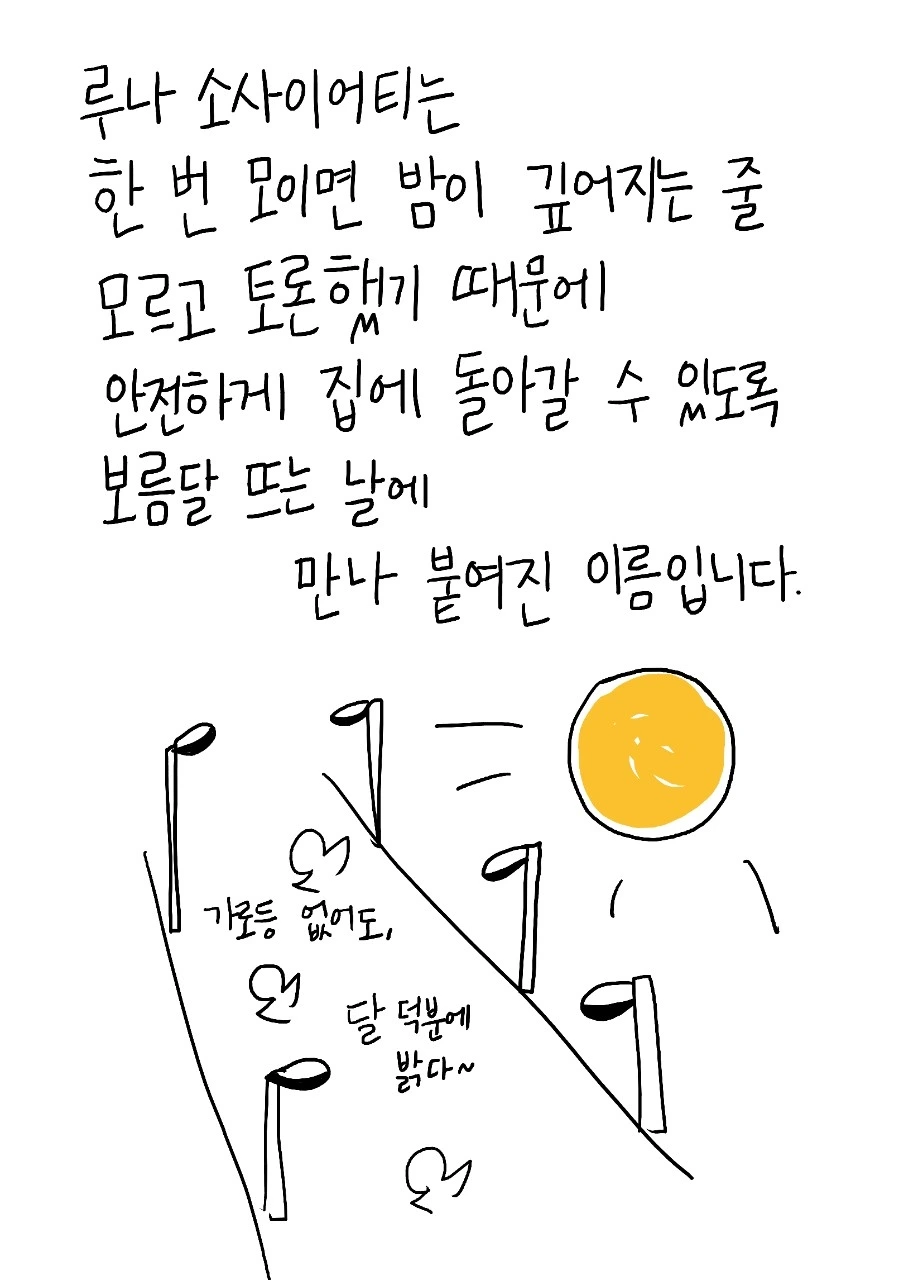 루나 소사이어티는
한 번 모이면 밤이 깊어지는 줄
모르고 토론했기 때문에
안전하게 집에 돌아갈 수 있도록
보름달 뜨는 날에
만나 붙여진 이름입니다.
가로등 없어도,
달 덕분에
밝다~